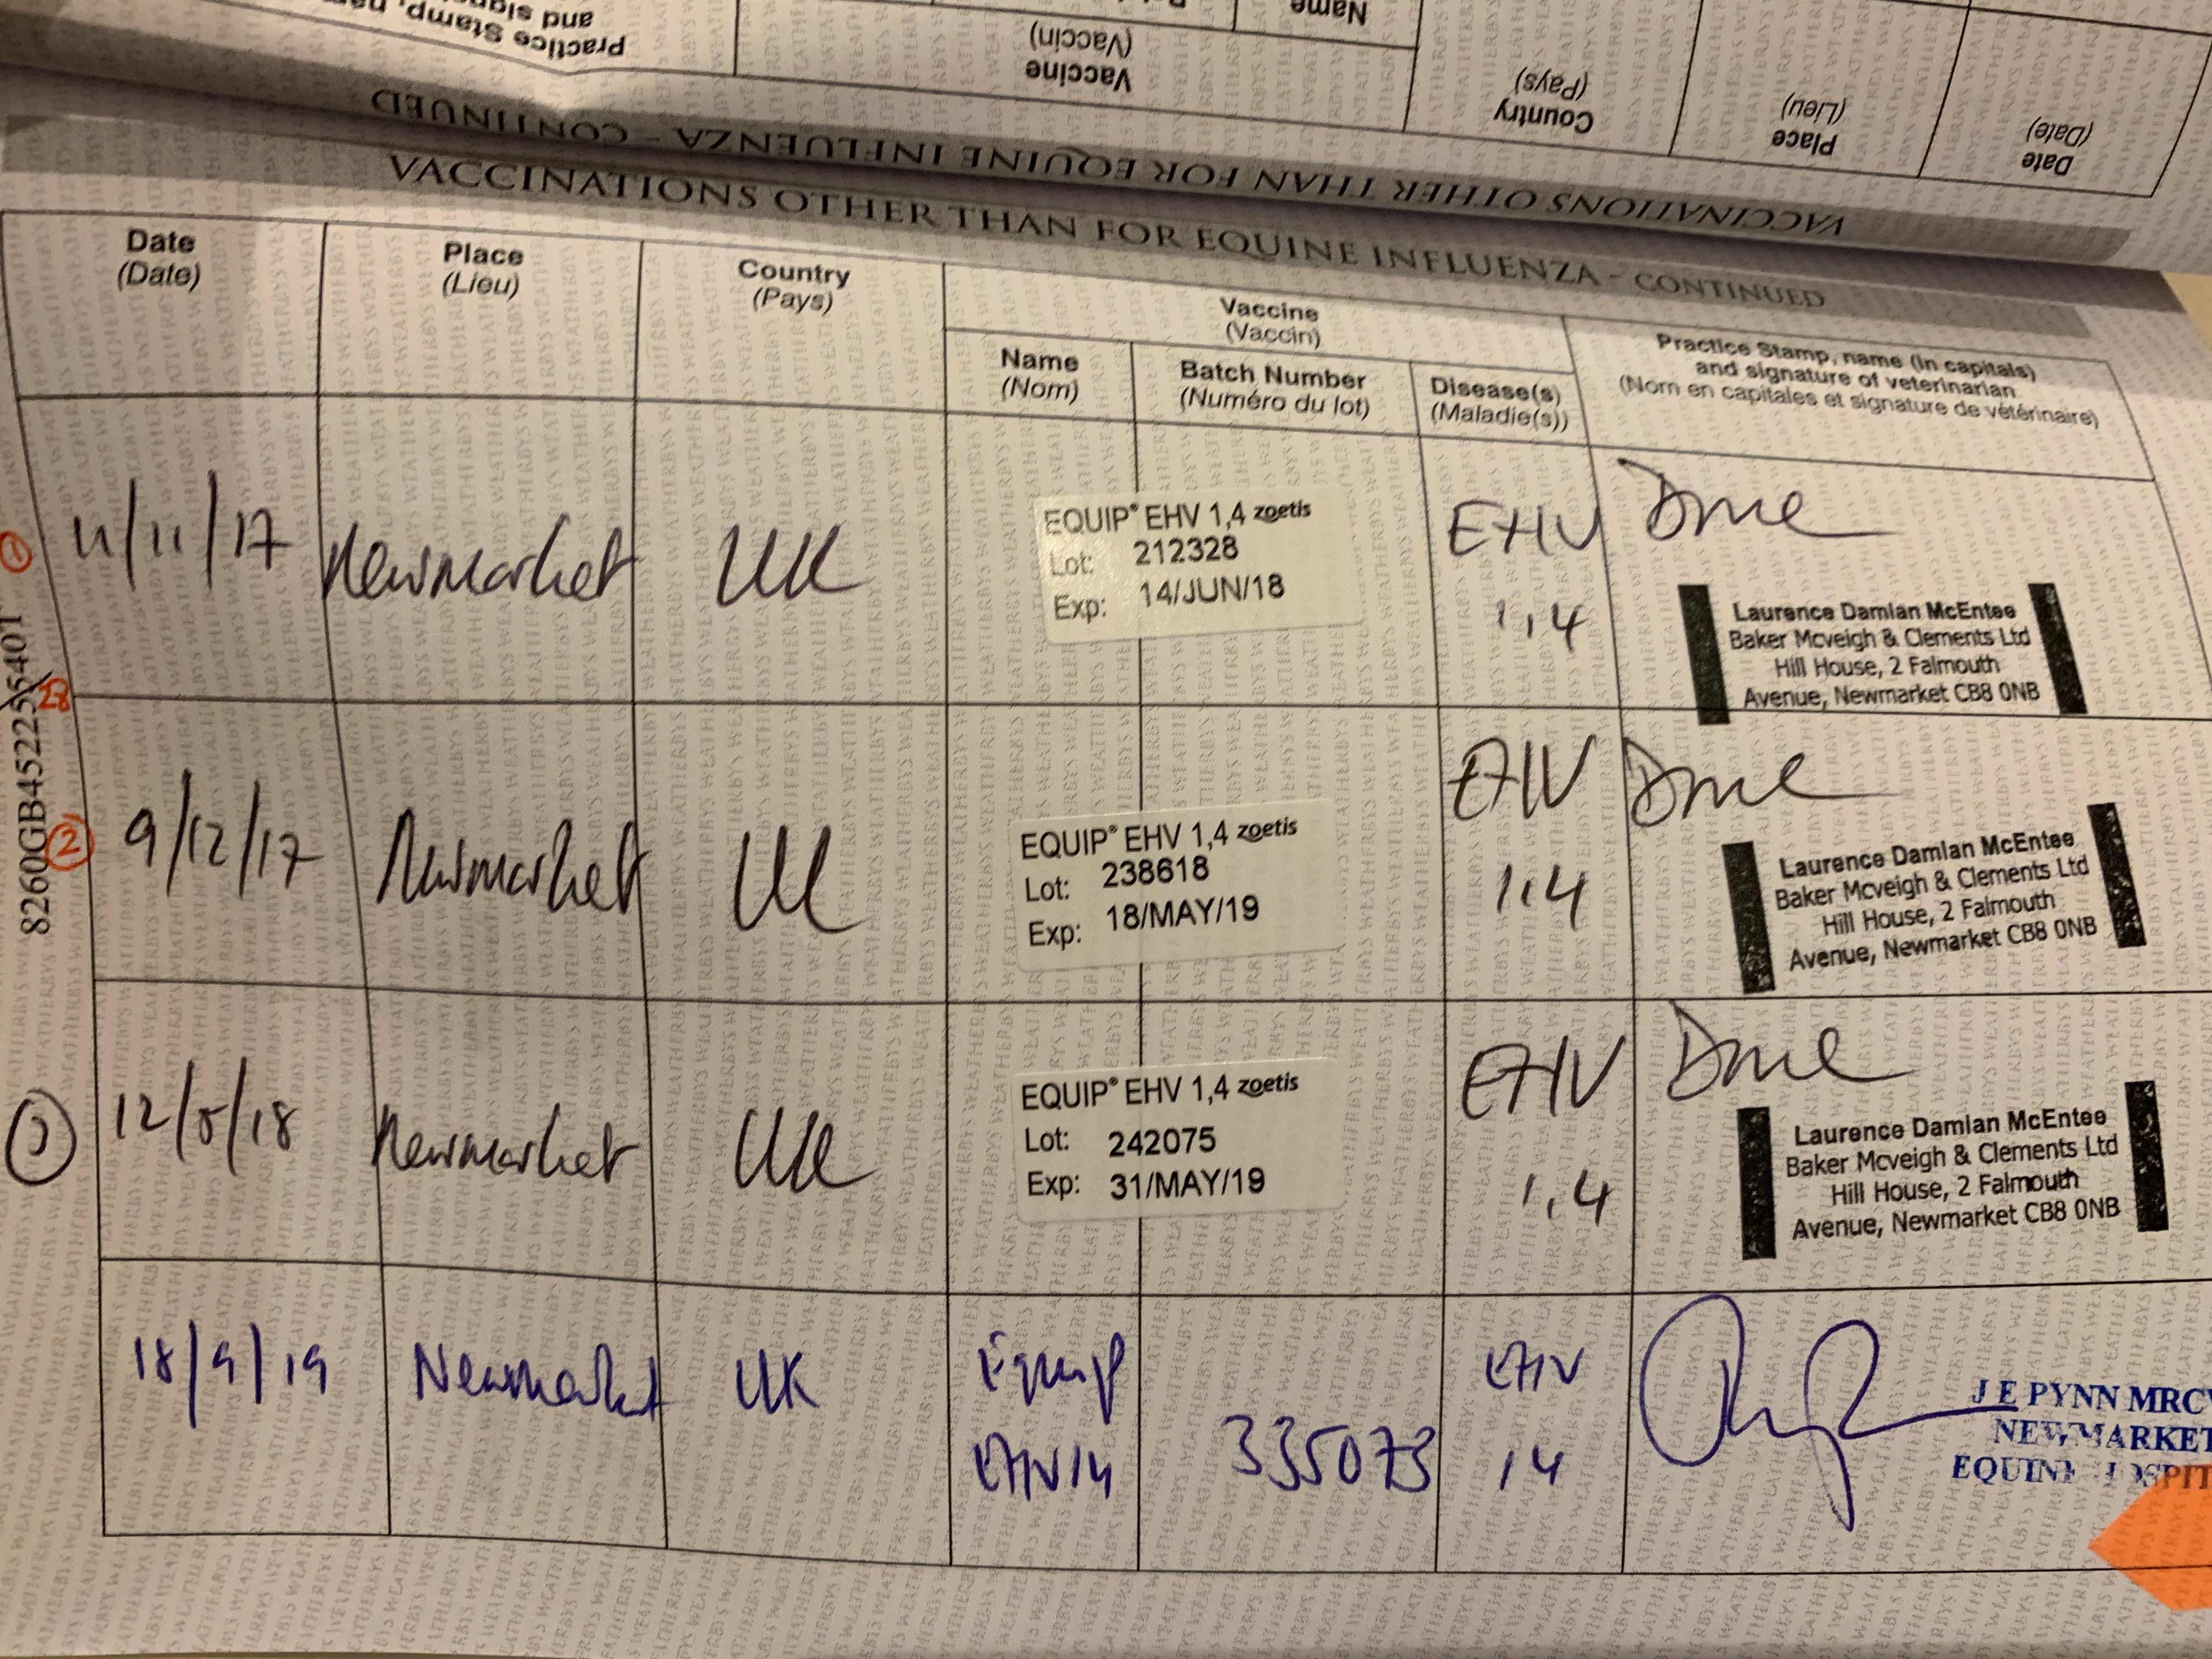 Practice Stamp,
and
Vaccine
(Vaccin)
Name
Country
(Pays)
Place
(Lieu)
Date
(Date)
VACCINATIONS OTHER THAN FOR EQUINE INFLUENZA - CONTINUED
VACCINATIONS OTHER THAN FOR EQUINE INFLUENZA - CONTINUED
Date
(Date)
Place
(Lieu)
Country
(Pays)
Vaccine
(Vaccin)
Name
(Nom)
Batch Number
(Numéro du lot)
Disease(s)
(Maladie(s))
Practice Stamp, name (in capitals)
and signature of veterinarian
(Nom en capitales et signature de vétérinaire)
11/11/17
Newmarket
UK
EQUIP® EHV 1,4 zoetis
Lot: 212328
Exp: 14/JUN/18
EHV
1,4
Laurence Damian McEntee
Baker Mcveigh & Clements Ltd
Hill House, 2 Falmouth
Avenue, Newmarket CB8 0NB
28
2
9/12/17
Newmarket
UK
EQUIP® EHV 1,4 zoetis
Lot: 238618
Exp: 18/MAY/19
EHV
1,4
Laurence Damian McEntee
Baker Mcveigh & Clements Ltd
Hill House, 2 Falmouth
Avenue, Newmarket CB8 0NB
12/5/18
Newmarket
UK
EQUIP® EHV 1,4 zoetis
Lot: 242075
Exp: 31/MAY/19
EHV
1,4
Laurence Damian McEntee
Baker Mcveigh & Clements Ltd
Hill House, 2 Falmouth
Avenue, Newmarket CB8 0NB
18/9/19
Newmarket
UK
Equip
EHV 14
335073
EHV
14
J E PYNN
NEWMARKET
EQUINE